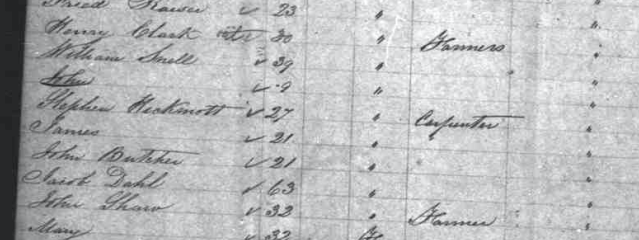 ✓ 23 "
Henry Clark ✓ 30 " Farmers "
William Snell ✓ 39 " "
John ✓ 9 " "
Stephen Hickmott ✓ 27 " Carpenter "
James ✓ 21 " "
John Butcher ✓ 21 " "
Jacob Dahl ✓ 63 " "
John Shaw ✓ 32 " Farmer "
Mary ✓ 32 "